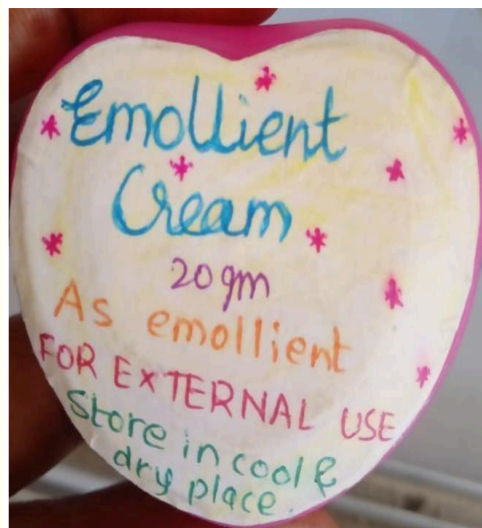 Emollient
Cream
20gm
As emollient
FOR EXTERNAL USE
Store in cool &
dry place.